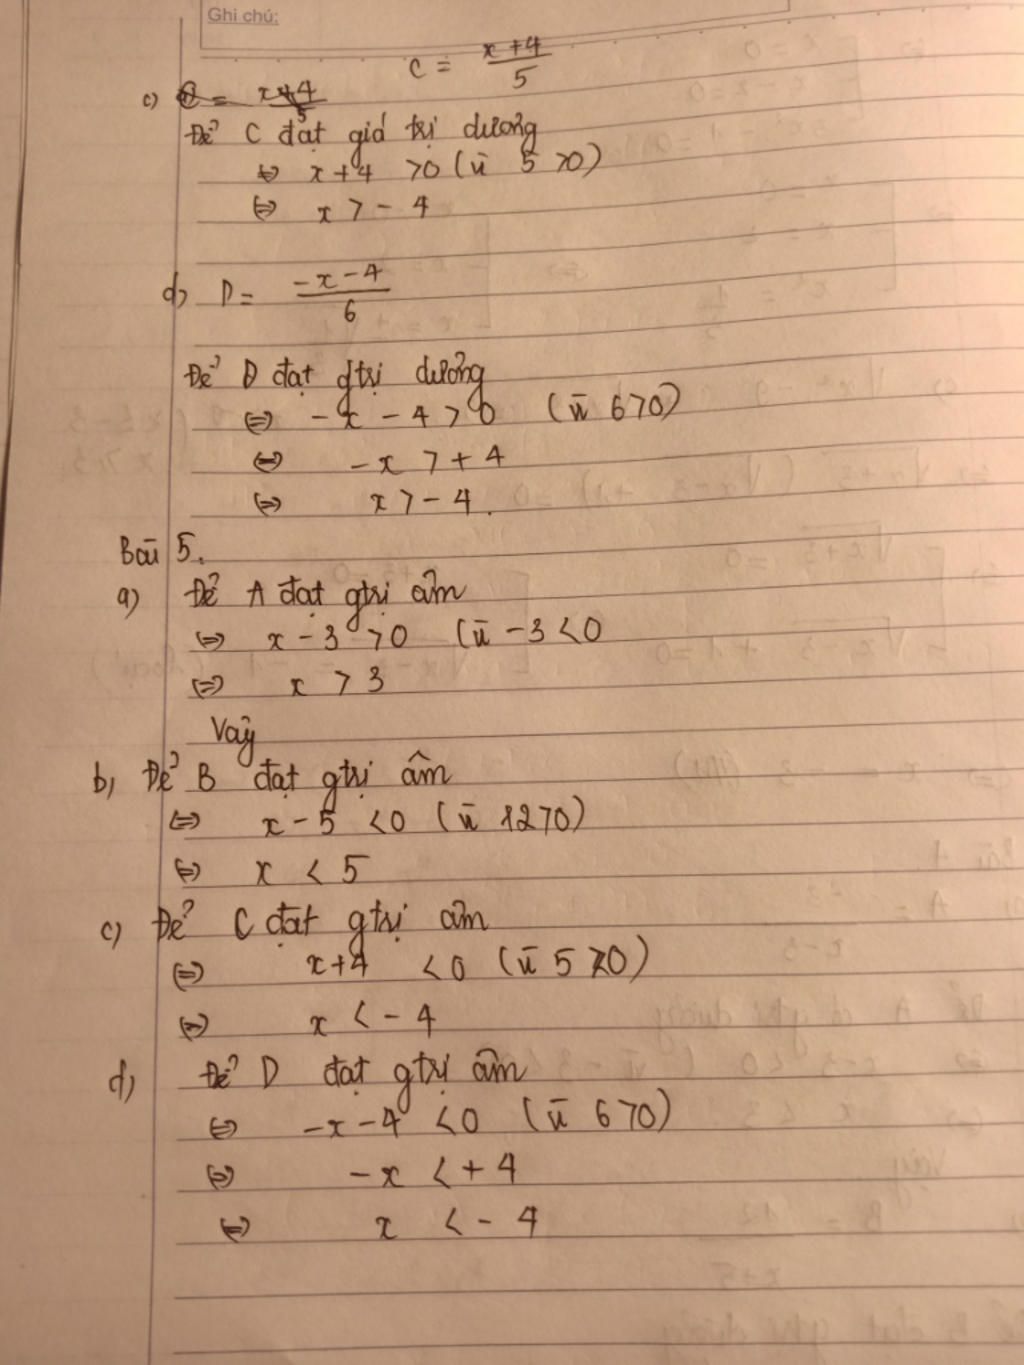 Ghi chú:
C = x+4/5
c) C = x+4/5
Để C đạt giá trị dương
⇔ x+4 >0 (vì 5 >0)
⇔ x > -4
d) D = -x-4/6
Để D đạt gtrị dương
⇔ -x - 4 > 0 (vì 6>0)
⇔ -x > +4
⇔ x > -4.
Bài 5.
a) Để A đạt gtrị âm
⇔ x - 3 >0 (vì -3 <0
⇔ x > 3
Vậy
b) Để B đạt gtrị âm
⇔ x - 5 <0 (vì 12>0)
⇔ x < 5
c) Để C đạt gtrị âm
⇔ x+4 <0 (vì 5 >0)
⇔ x < -4
d) Để D đạt gtrị âm
⇔ -x-4 <0 (vì 6>0)
⇔ -x < +4
⇔ x < -4